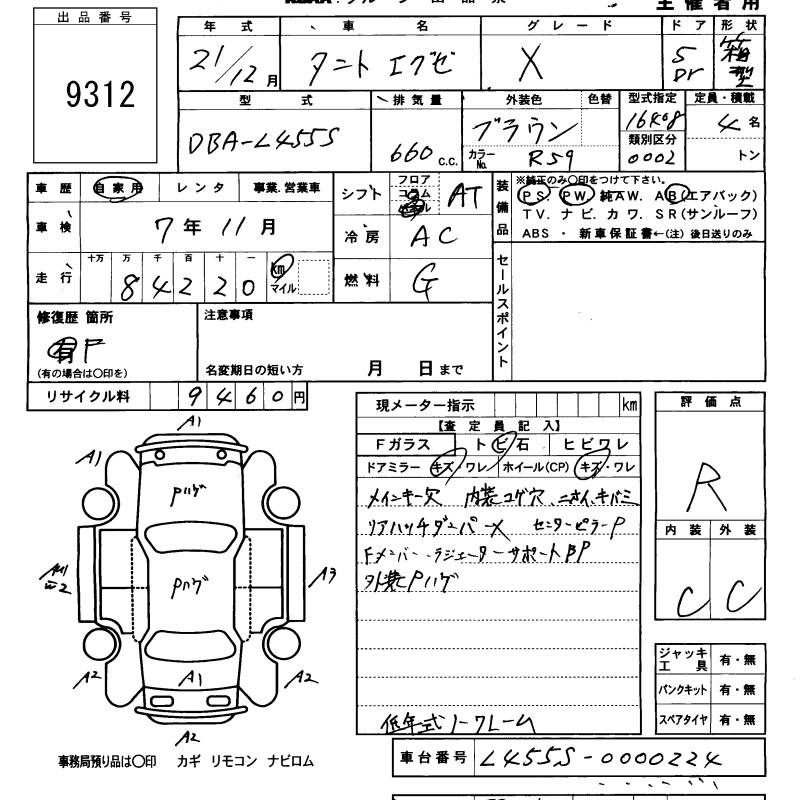 主催者用
出品番号
9312
年式 車名 グレード ドア 形状
21/12月 タント エグゼ X 5Dr 箱型
型式 排気量 外装色 色替 型式指定 定員・積載
DBA-L455S 660c.c. ブラウン 16408 4名
カラーNo. R59 類別区分 0002 トン
車歴 自家用 レンタ 事業.営業車
シフト フロア コラム AT
車検 7年11月
冷房 AC
走行 十万 万 千 百 十 一 km マイル
84220
燃料 G
装備品
※純正のみ○印をつけて下さい。
PS. PW. 純AW. AB(エアバック)
TV. ナビ. カワ. SR(サンルーフ)
ABS ・ 新車保証書←(注) 後日送りのみ
セールスポイント
修復歴 箇所
有 F
(有の場合は○印を)
注意事項
名変期日の短い方 月 日まで
リサイクル料 9460円
現メーター指示 km
【査定員記入】
Fガラス トビ石 ヒビワレ
ドアミラー キズ・ワレ ホイール(CP) キズ・ワレ
メインキー欠 内装コゲ穴、
リアハッチダンパーX センターピラーP
Fメンバー、ラジエーターサポートBP
外装Pハゲ
低年式ノークレーム
評価点
R
内装 外装
C C
ジャッキ工具 有・無
パンクキット 有・無
スペアタイヤ 有・無
A1
A1
Pハゲ
Pハゲ
A3
A2
A1
A2
A2
事務局預り品は○印 カギ リモコン ナビロム
車台番号 L455S-0000224